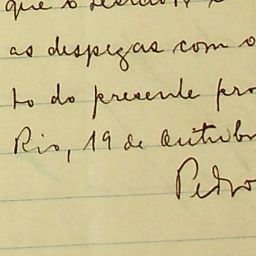 que o
as despezas com o
to do presente pro
Rio, 19 de Outubr
Pedro